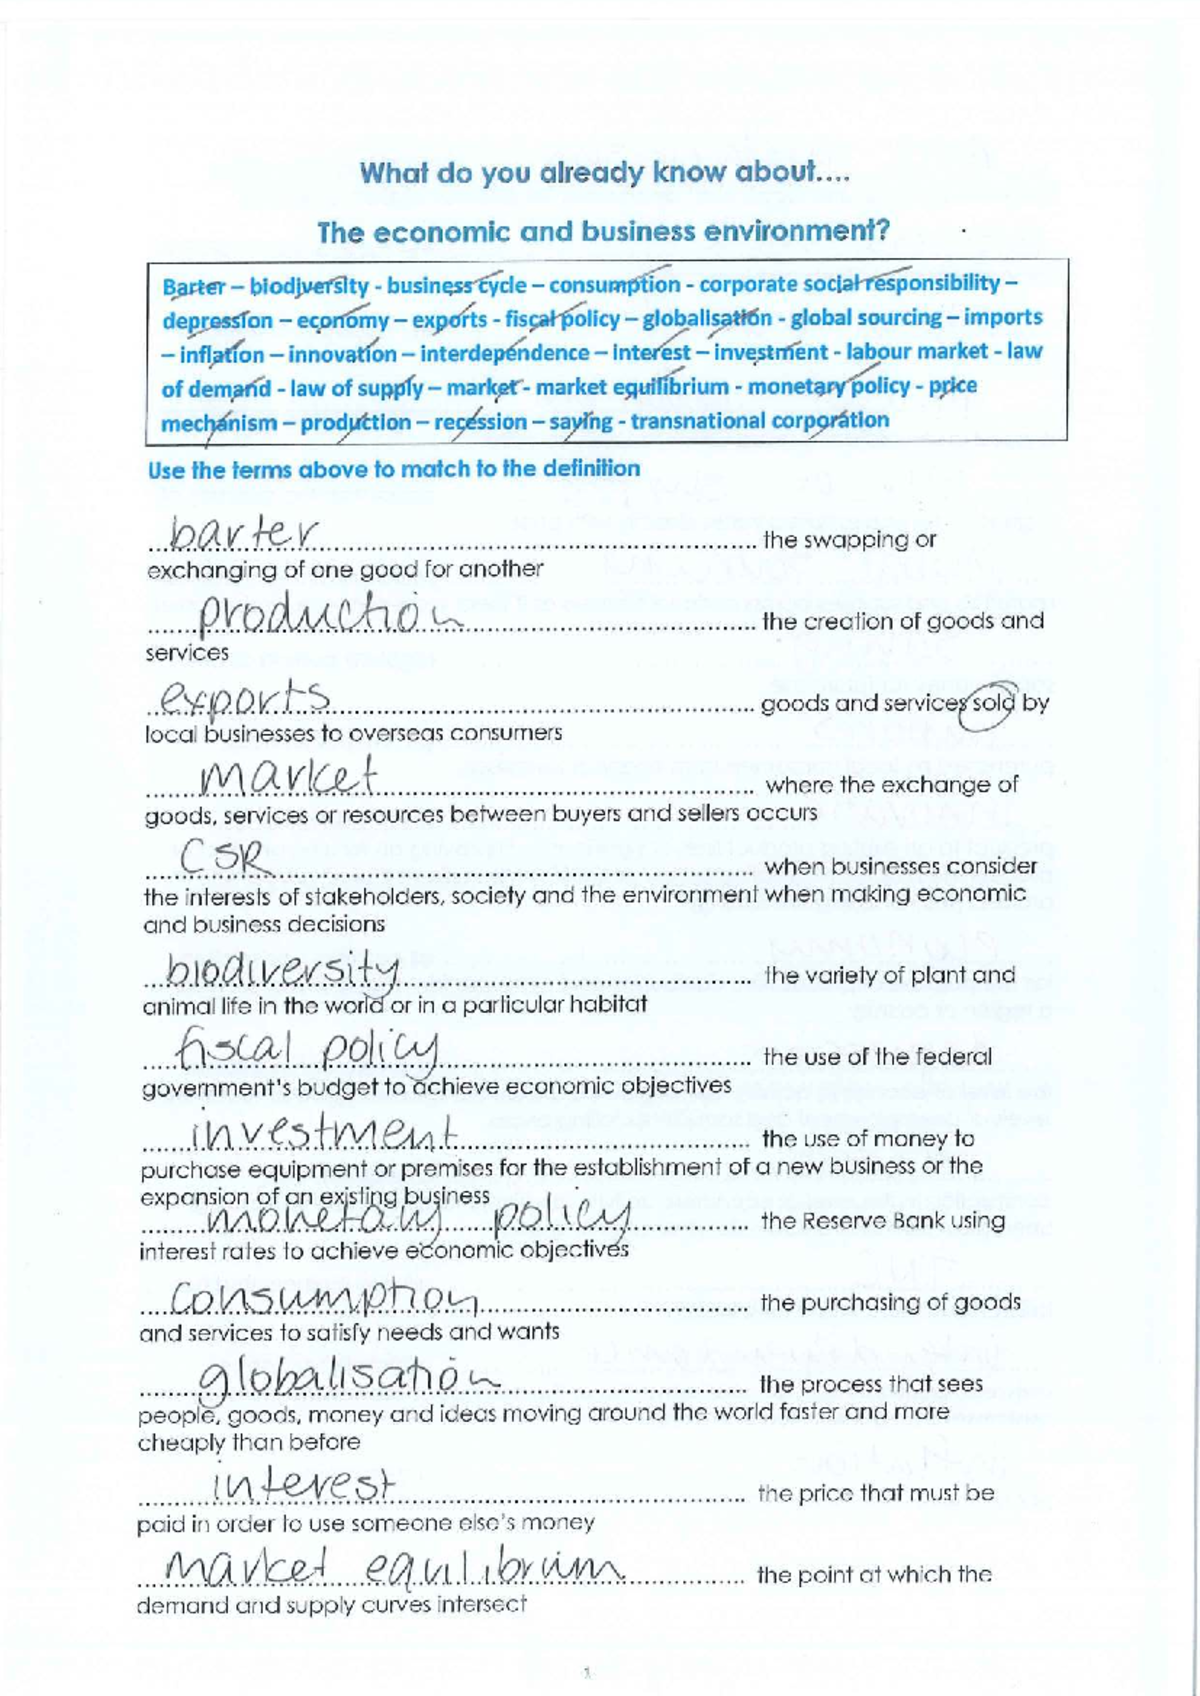 What do you already know about....
The economic and business environment?
Barter – biodiversity - business cycle – consumption - corporate social responsibility –
depression – economy – exports - fiscal policy – globalisation - global sourcing – imports
– inflation – innovation – interdependence – interest – investment - labour market - law
of demand - law of supply – market - market equilibrium - monetary policy - price
mechanism – production – recession – saying - transnational corporation
Use the terms above to match to the definition
barter the swapping or
exchanging of one good for another
production the creation of goods and
services
exports goods and services sold by
local businesses to overseas consumers
market where the exchange of
goods, services or resources between buyers and sellers occurs
CSR when businesses consider
the interests of stakeholders, society and the environment when making economic
and business decisions
biodiversity the variety of plant and
animal life in the world or in a particular habitat
fiscal policy the use of the federal
government's budget to achieve economic objectives
investment the use of money to
purchase equipment or premises for the establishment of a new business or the
expansion of an existing business
monetary policy the Reserve Bank using
interest rates to achieve economic objectives
consumption the purchasing of goods
and services to satisfy needs and wants
globalisation the process that sees
people, goods, money and ideas moving around the world faster and more
cheaply than before
interest the price that must be
paid in order to use someone else's money
market equilibrium the point at which the
demand and supply curves intersect
1